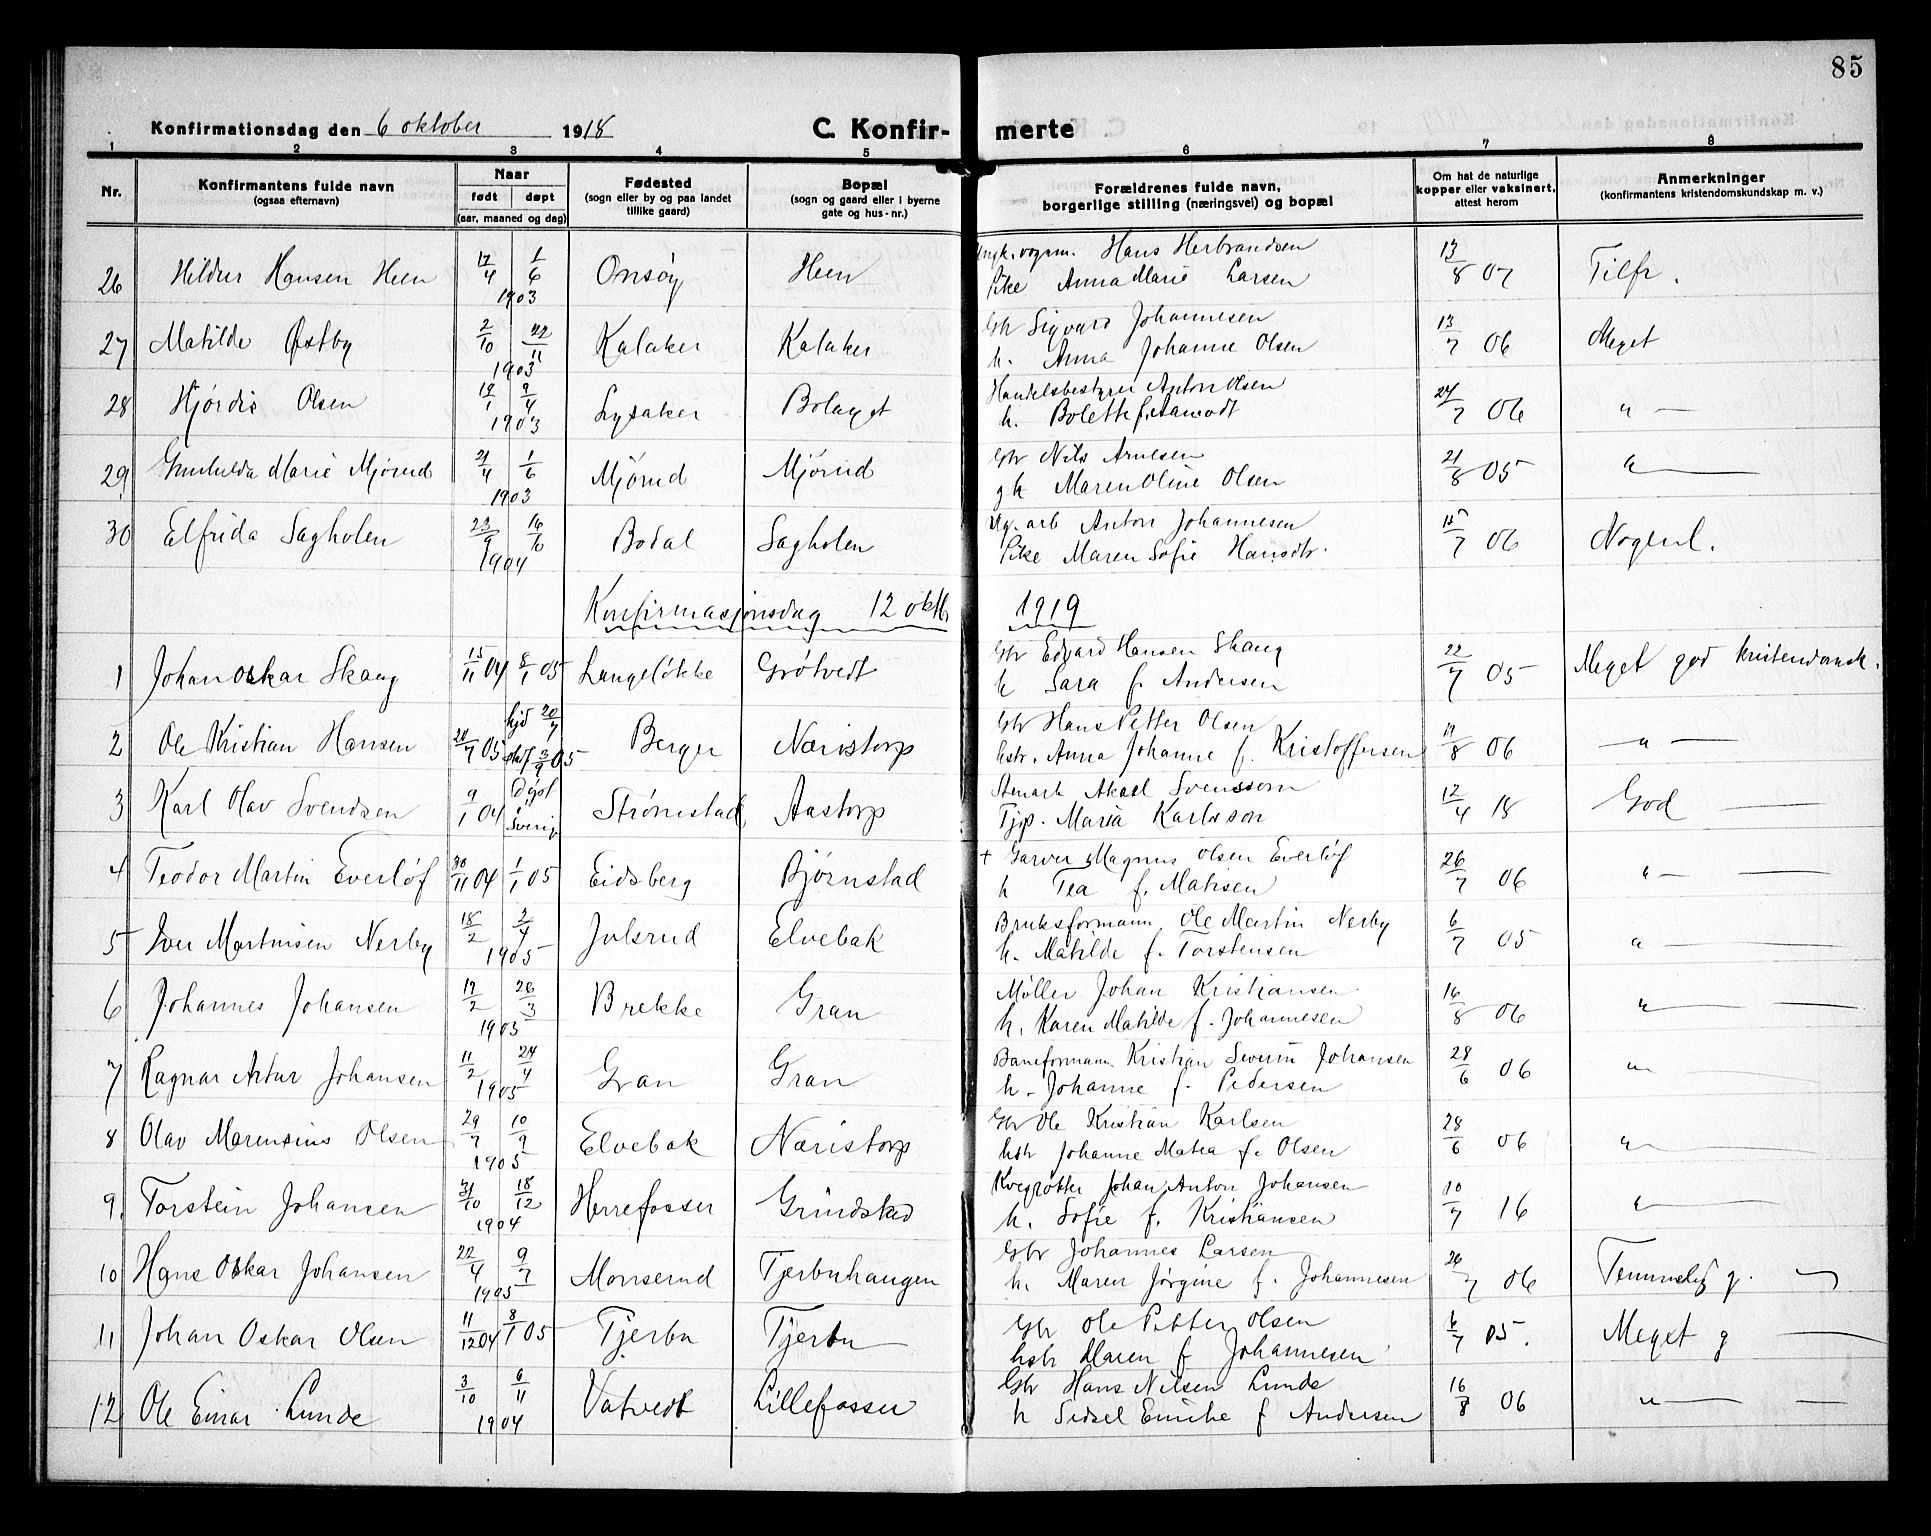 85
Konfirmationsdag den 6 oktober 1918 C. Konfirmerte
1 2 3 4 5 6 7 8
Nr. Konfirmantens fulde navn (ogsaa efternavn) Naar født døpt (aar, maaned og dag) Fødested (sogn eller by og paa landet tillike gaard) Bopæl (sogn og gaard eller i byerne gate og hus-nr.) Forældrenes fulde navn, borgerlige stilling (næringsvei) og bopæl Om hat de naturlige kopper eller vaksinert, attest herom Anmerkninger (konfirmantens kristendomskundskap m. v.)
Hans Herbrandsen
26 Hildur Hansen Heen 17/4 1/6 1903 Onsøy Heen Pike Anna Marie Larsen 13/8 07 Tilfr.
Gbr Sigvard Johannesen
27 Matilde Østby 2/10 22/11 1903 Kalaker Kalaker h. Anna Johanne Olsen 13/7 06 Meget
Handelsbestyrer Anton Olsen
28 Hjørdis Olsen 12/1 9/4 1903 Lysaker Bolaget h. Bolette f. Aamodt 24/7 06 " —
Gbr Nils Arnesen
29 Gunhilda Marie Mjørud 21/4 1/6 1903 Mjørud Mjørud gh Maren Oline Olsen 21/8 05 " —
Ug. arb Anton Johannesen
30 Elfrida Sagholen 23/9 16/10 1904 Bodal Sagholen Pike Maren Sofie Hansdtr. 15/7 06 Nogenl.
Konfirmasjonsdag 12 oktb. 1919
Gbr Edvard Hansen Skaug
1 Johan Oskar Skaug 15/11 04 8/1 05 Langeløkke Grøtvedt h Sara f. Andersen 22/7 05 Meget god kristendomsk.
Gbr Hans Petter Olsen
2 Ole Kristian Hansen 20/7 05 hjd 20/7 stadf 3/9 05 Berger Næristorp hstr. Anna Johanne f. Kristoffersen 19/8 06 — " —
Stenarb Aksel Svensson
3 Karl Olav Svendsen 9/1 04 Døpt i Sverig Strømstad Aastorp Tjp. Maria Karlsson 12/4 18 God —
+ Garver Magnus Olsen Everløf
4 Teodor Martin Everløf 30/11 04 1/1 05 Eidsberg Bjørnstad h Tea f. Matisen 26/7 06 " — —
Bruksformann Ole Martin Nerby
5 Iver Martinsen Nerby 18/2 2/4 1905 Julsrud Elvebak h. Matilde f. Torstensen 6/7 05 " — —
Møller Johan Kristiansen
6 Johannes Johansen 17/2 26/3 1905 Brekke Gran h. Karen Matilde f. Johannesen 16/8 06 " — —
Baneformann Kristian Severin Johansen
7 Ragnar Artur Johansen 11/2 24/4 1905 Gran Gran h. Johanne f. Pedersen 28/6 06 " —
Gbr Ole Kristian Karlsen
8 Olav Marensius Olsen 29/7 10/9 1905 Elvebak Næristorp hstr Johanne Matea f. Olsen 28/6 06 " —
Kvegrøkter Johan Anton Johansen
9. Torstein Johansen 31/10 18/12 1904 Herrefosser Grindstad h. Sofie f. Kristiansen 10/7 16 " —
Gbr Johannes Larsen
10 Hans Oskar Johansen 22/4 9/7 1905 Monserud Tjerbuhaugen h. Maren Jørgine f. Johannesen 26/7 06 Temmelig g. —
Gbr Ole Petter Olsen
11 Johan Oskar Olsen 11/12 04 8/1 05 Tjerbu Tjerbu hstr Maren f Johannesen 6/7 05. Meget g —
Gbr Hans Nilsen Lunde
12 Ole Einar Lunde 3/10 6/11 1904 Vatvedt Lillefosser h Sidsel Emilie f Andersen 16/8 06 " — —